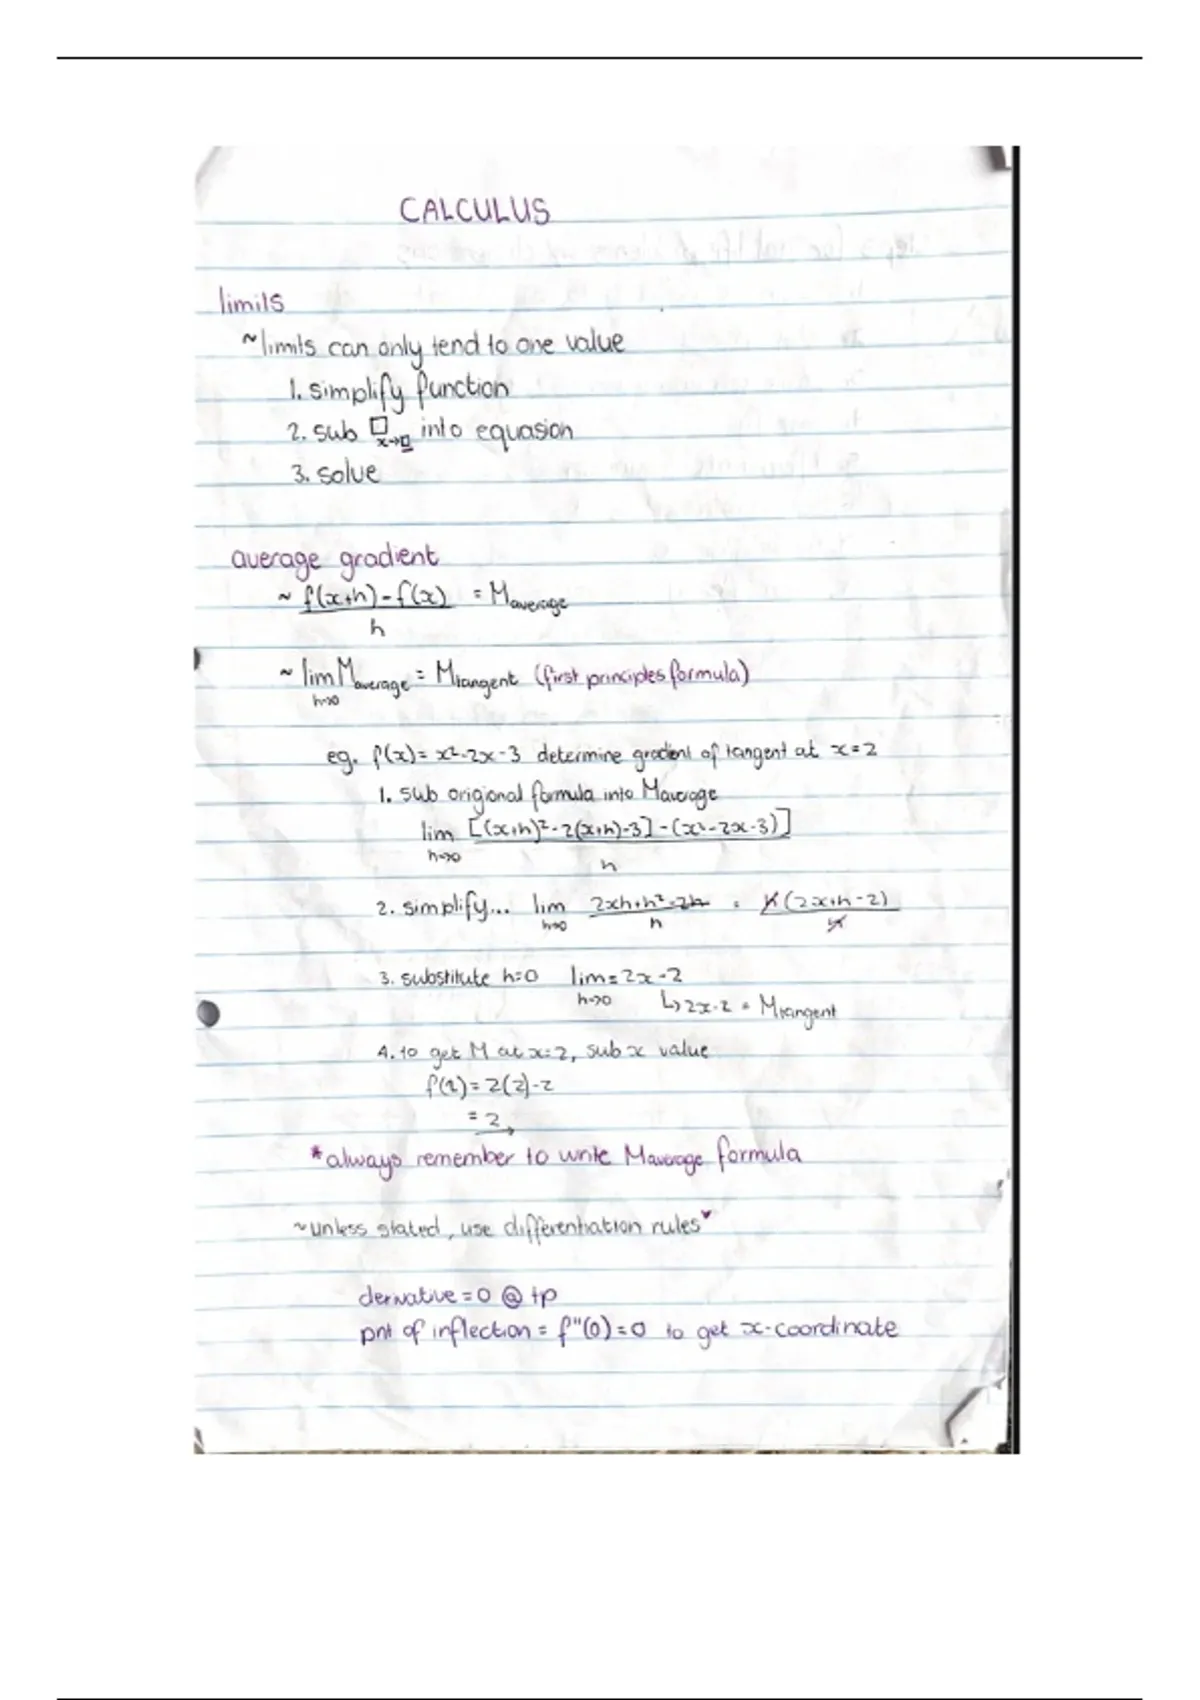 CALCULUS
limits
~limits can only tend to one value
1. simplify function
2. sub □ x→□ into equasion
3. solve
average gradient
~ f(x+h)-f(x) = Maverage
h
~ lim Maverage = Mtangent (first principles formula)
h→0
eg. f(x)= x²-2x-3 determine gradient of tangent at x=2
1. sub origional formula into Maverage
lim [(x+h)²-2(x+h)-3]-(x²-2x-3)]
h→0 h
2. simplify... lim 2xh+h²-2h = h(2x+h-2)
h→0 h h
3. substitute h=0 lim = 2x-2
h→0 ↳ 2x-2 = Mtangent
4. to get M at x=2, sub x value
f(2)= 2(2)-2
= 2
*always remember to write Maverage formula
~unless stated, use differentiation rules
derivative = 0 @ tp
pnt of inflection = f"(0)=0 to get x-coordinate